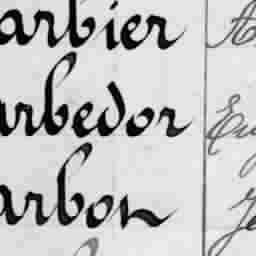 arbier
arbedor
arbon